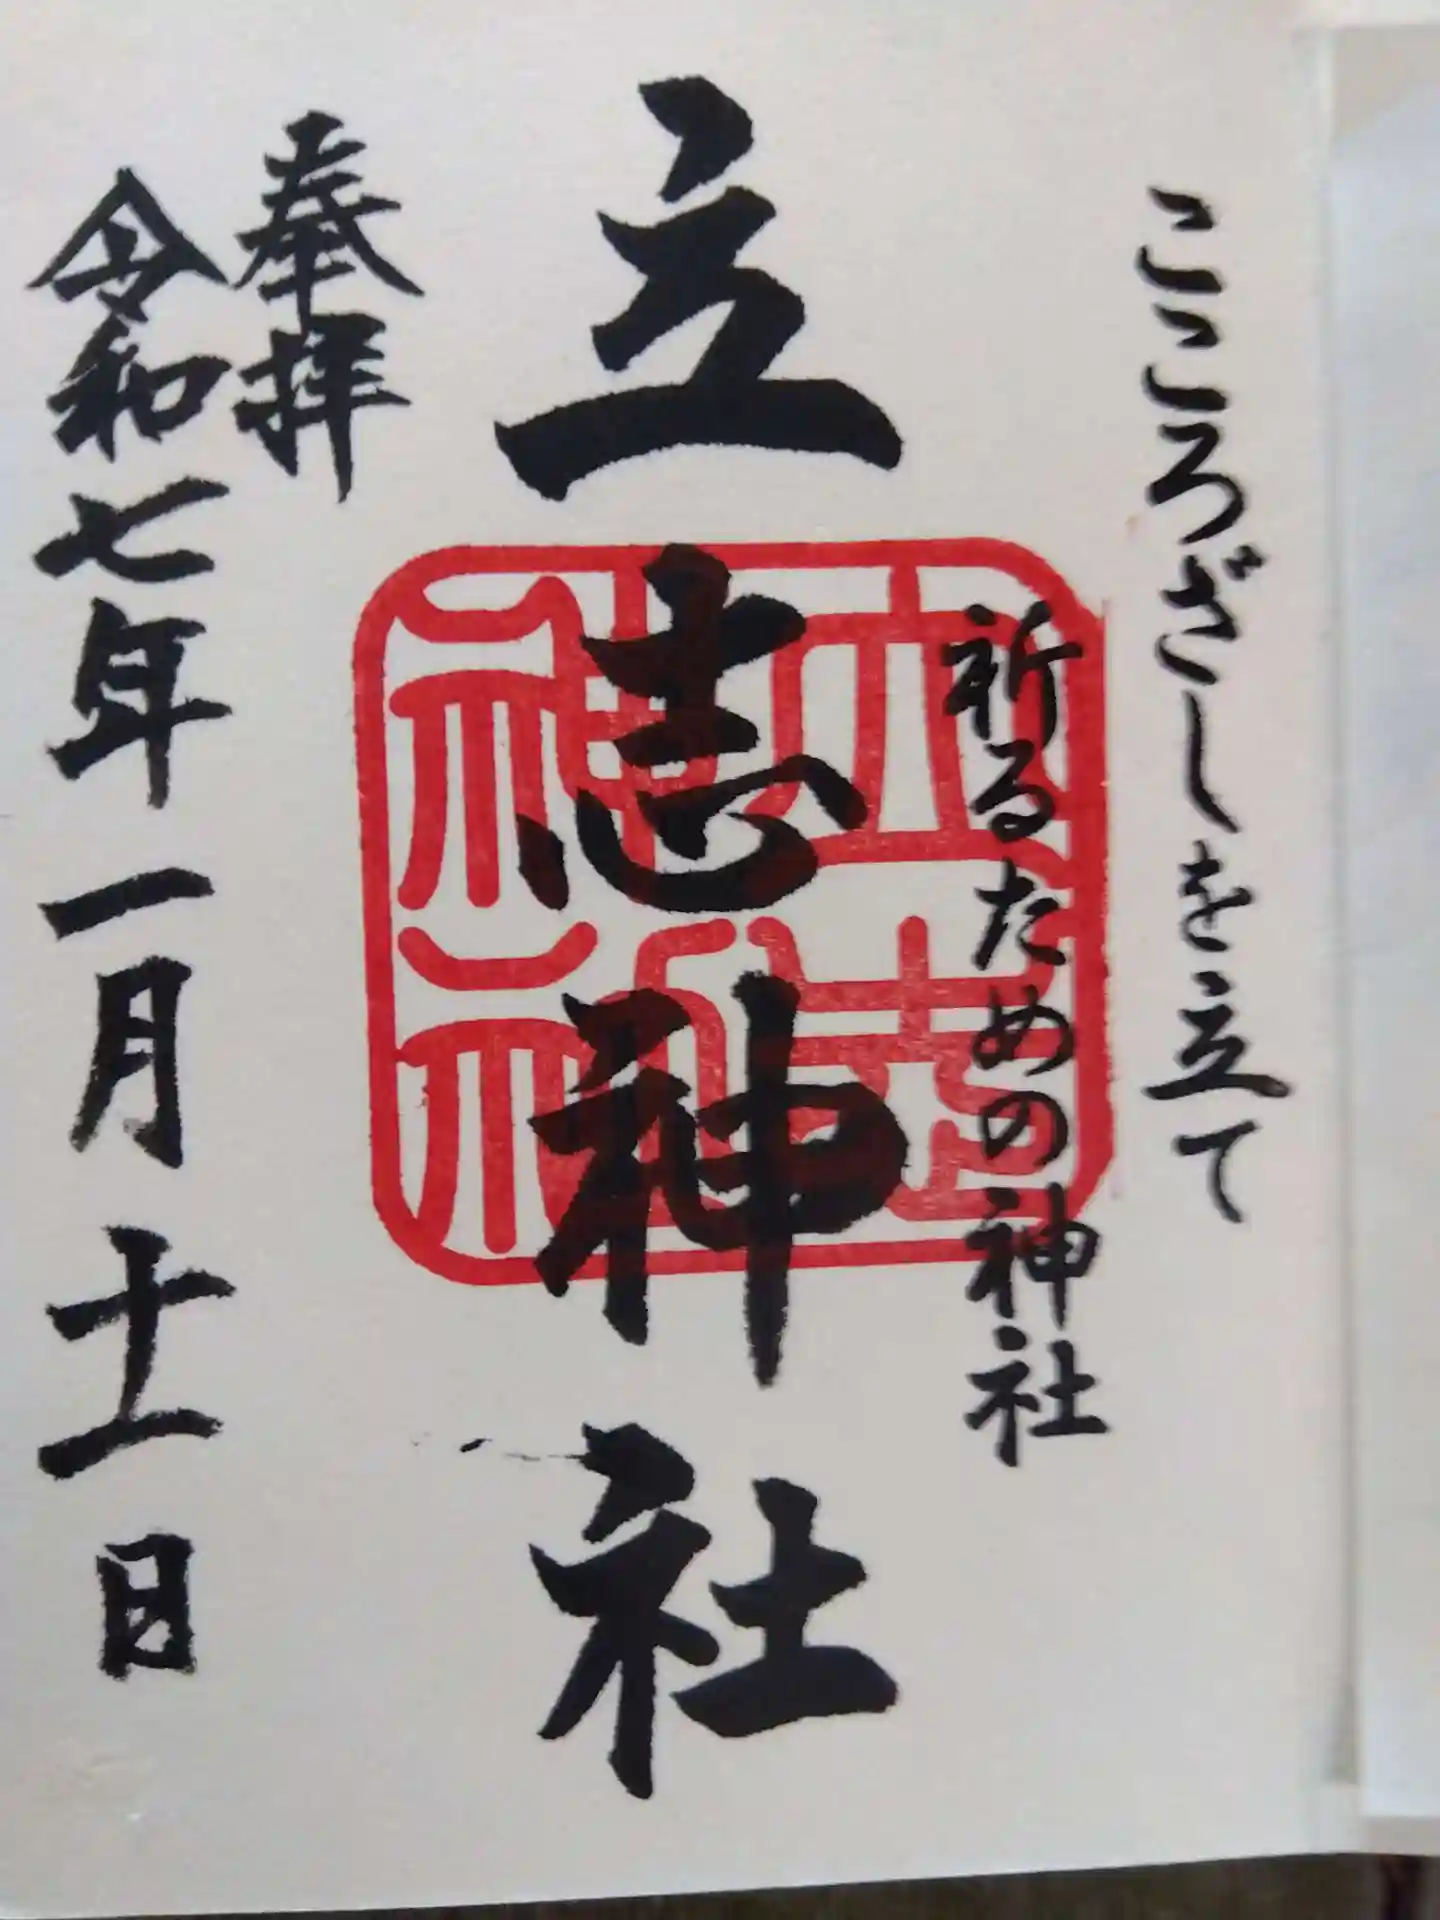 こころざしを立て
祈るための神社
立志神社
立志神社
奉拝
令和七年一月十一日